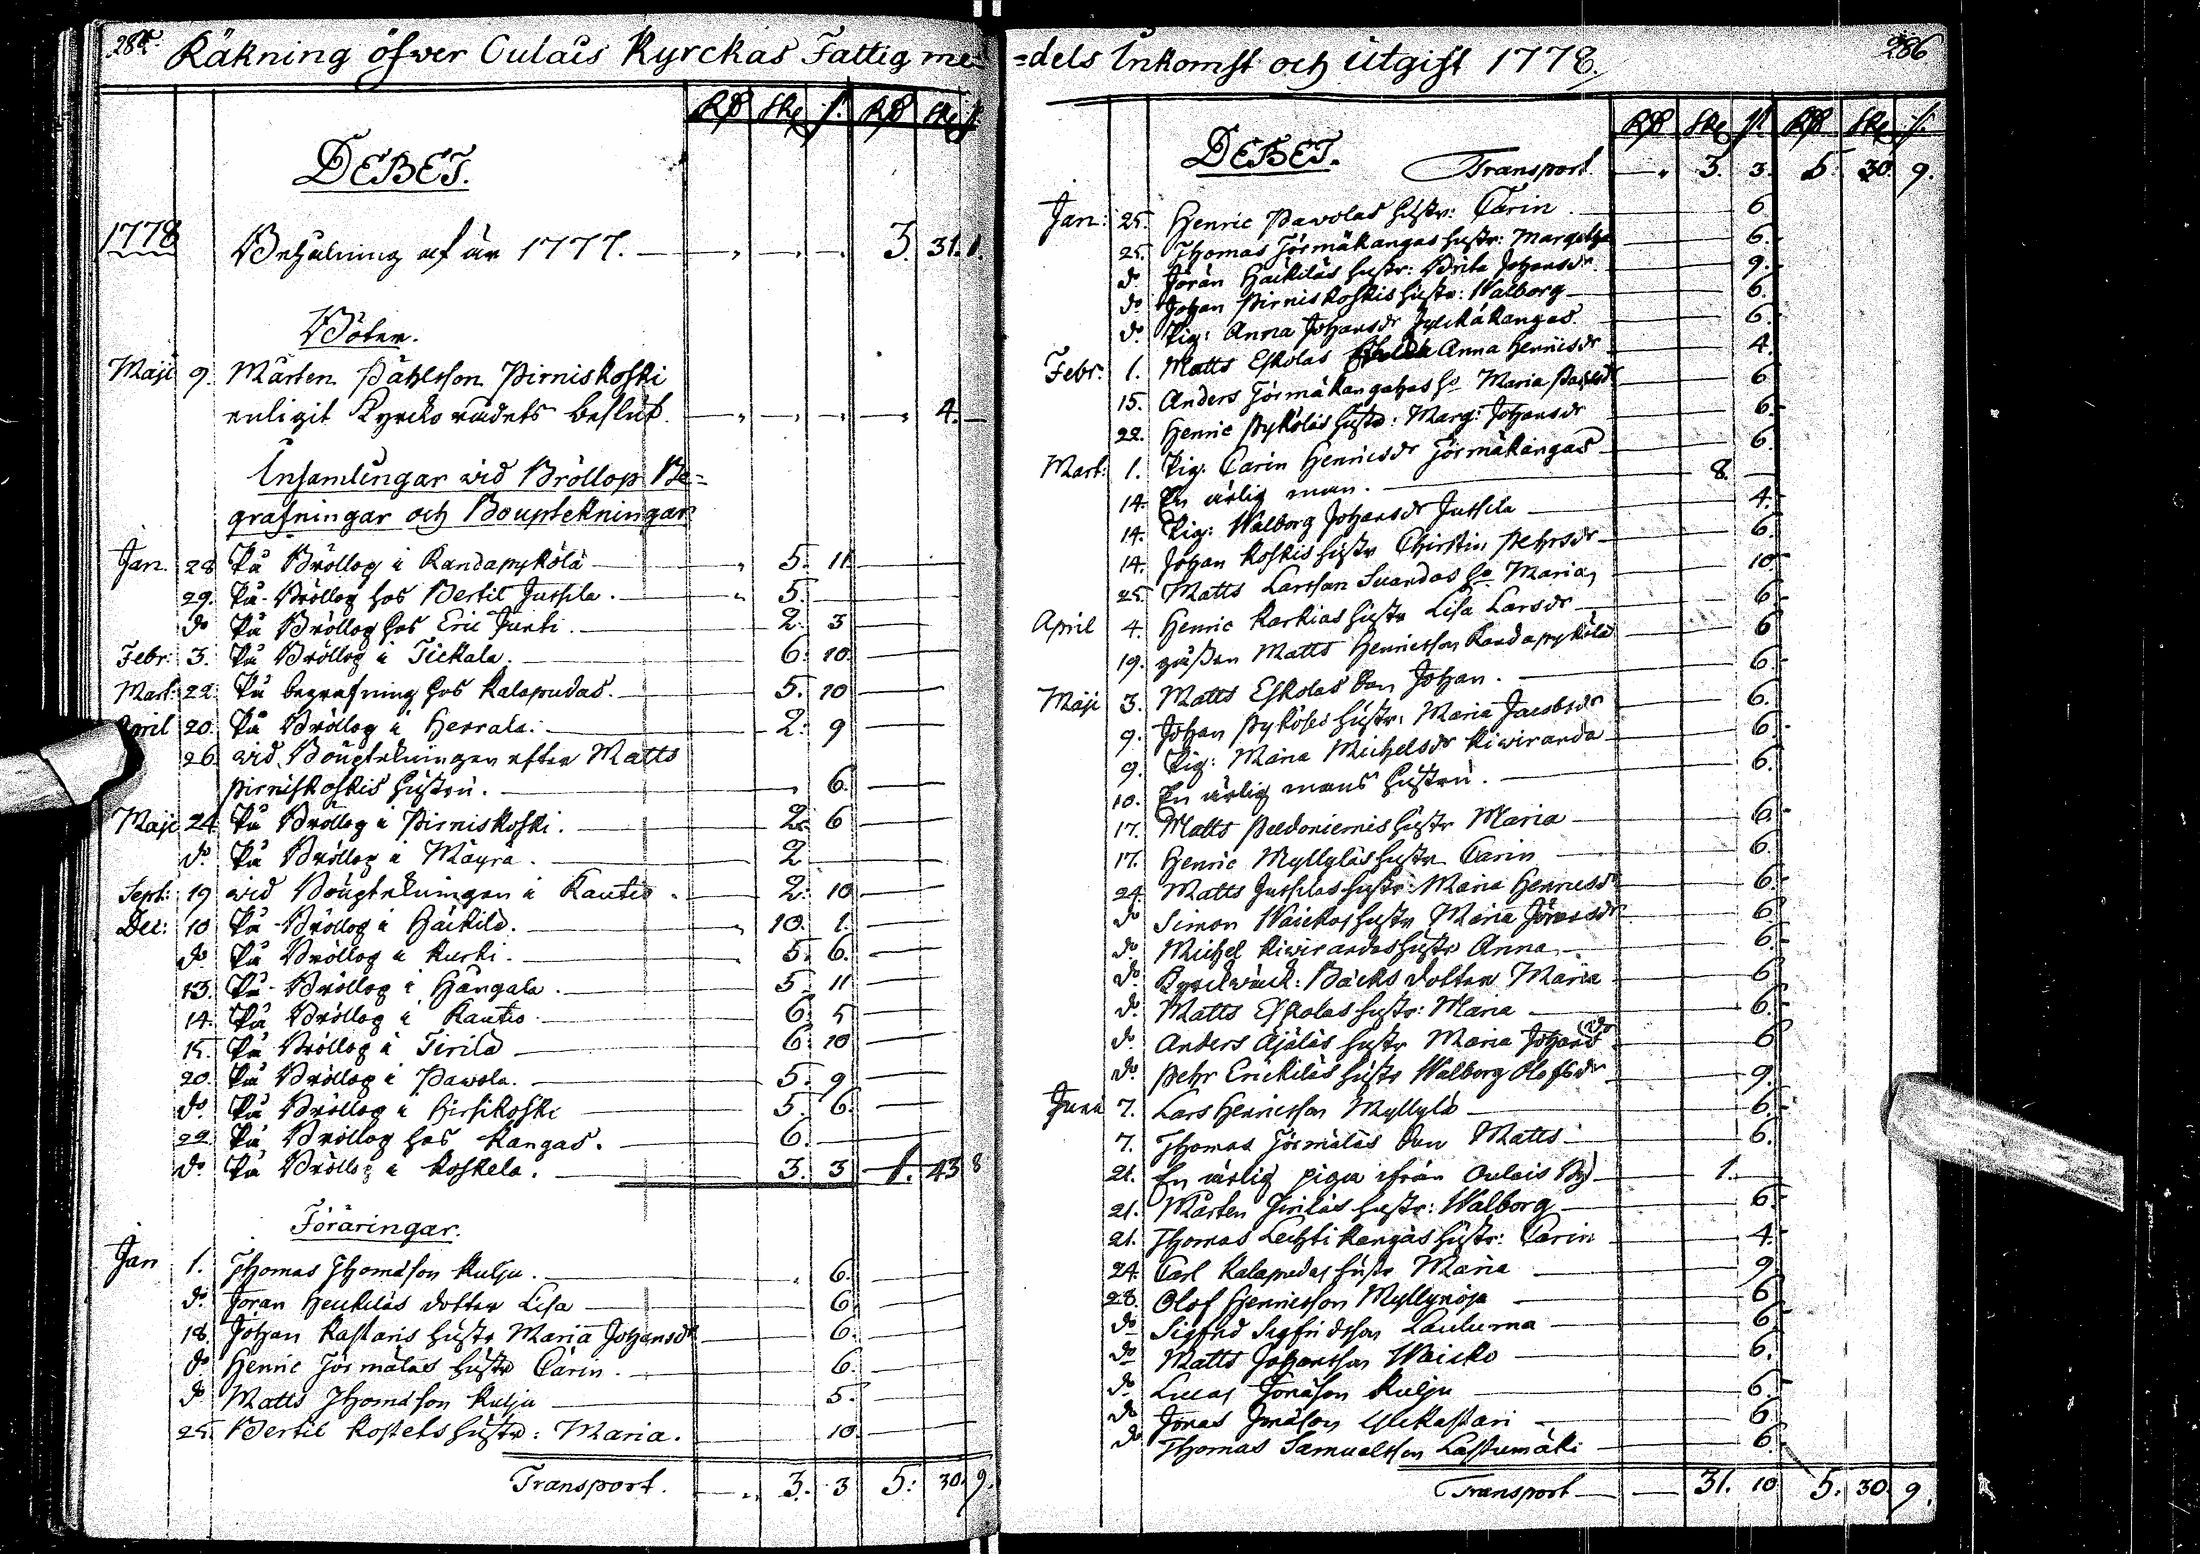 285. Räkning öfwer Oulais Kyrckas Fattig me-
Rd Sk f. Rd Sk f.
DEBET.
1778 Behålning af år 1777. — 3. 31. 1.
Böter.
Maji 9. Mårten Påhlsson Pirniskoski
enligit Kyrcko rådets beslut. — 4. —
Insamlingar wid Bröllop Be-
grafningar och Bouptekningar
Jan. 28 På Bröllop i Randapykölä — 5. 11
29. På Bröllop hos Bertil Jussila. — 5.
do På Bröllop hos Eric Junti. — 2. 3
Febr: 3. På Bröllop i Tickala. — 6. 10.
Mart: 22. På begrafning hos Kalapudas. — 5. 10
April 20. På Bröllop i Herrala. — 2. 9
26. wid Bouptekningen efter Matts
Pirniskoskis hustru. — 6.
Maji 24. På Bröllop i Pirniskoski. — 2. 6
do På Bröllop i Mäyrä. — 2
Sept: 19 wid Bouptekningen i Rautio. — 2. 10
Dec: 10 På Bröllop i Häckilä. — 10. 1.
do På Bröllop i Kurki. — 5. 6.
13. På Bröllop i Hangala. — 5. 11
14. På Bröllop i Rautio — 6. 5
15. På Bröllop i Tirilä — 6. 10
20. På Bröllop i Pawola. — 5. 9
do På Bröllop i Hirsikoski — 5. 6.
22. På Bröllop hos Kangas. — 6.
do På Bröllop i Koskela. — 3. 3 1. 43 8
Föräringar.
Jan 1. Thomas Thomasson Kulju. — 6.
do Jöran Heickiläs dotter Lisa — 6.
18. Johan Kastaris hustr Maria Johansdr — 6.
do Henric Jörmäläs hustr Carin. — 6.
do Matts Thomasson Kulju — 5.
25. Bertil Koskels hustr: Maria. — 10.
Transport. — 3. 3 5. 30. 9.
=dels Inkomst och Utgift 1778. 286
Rd Sk f. Rd Sk f.
DEBET. Transport. — 3. 3. 5. 30. 9.
Jan: 25. Henric Pawolas hustr: Carin — 6
25. Thomas Jörmäkangas hustr: Margetha — 6.
do Jöran Häckiläs hustr: Brita Johansdr — 9.
do Johan Pirniskoskis hustr: Walborg — 6.
do Pig: Anna Johansdr Jylckäkangas. — 6.
Febr. 1. Matts Eskolas Anna Henricsdr — 4.
15. Anders Jörmäkangahas ho Maria — 6
22. Henric Pyköläs hustr: Marg: Johansdr — 6.
Mart: 1. Pig: Carin Henricsdr Jörmäkangas — 6
14. En ärlig man. — 8.
14. Pig: Walborg Johansdr Jussila — 4.
14. Johan Koskis hustr Christin Pehrsdr — 6.
25. Matts Larsson Suandos ho Maria — 10.
April 4. Henric Karkias hustr Lisa Larsdr — 6.
19. gåssen Matts Henricsson Randapykölä — 6
Maji 3. Matts Eskolas Son Johan. — 6.
9. Johan Pykölés hustr: Maria Jacobsdr — 6.
9. Pig: Maria Michelsdr Kiwiranda — 6.
10. En ärlig mans hustru. — 6.
17. Matts Peldoniemis hustr Maria — 6.
17. Henric Myllyläs hustr Carin — 6.
24. Matts Jussilas hustr: Maria Henricsdr — 6.
do Simon Waickos hustr Maria — 6.
do Michel Kiwirandas hustr Anna — 6.
do Kyrckwäck: Bäcks dotter Maria — 6.
do Matts Eskolas hustr: Maria — 6.
do Anders Ajäläs hustr Maria Johansdr — 6
do Pehr Erickiläs hustr Walborg Olofsdr — 9.
Juni 7. Lars Henricsson Myllylä — 6.
7. Thomas Jörmäläs Son Matts — 6.
21. En ärlig piga ifrån Oulais By — 1.
21. Mårten Jiriläs hustr: Walborg — 6.
21. Thomas Lechtikangas hustr: Carin — 4.
24. Carl Kalapudas hustr Maria — 9
28. Olof Henricsson Myllynoja — 6
do Sigfrid Sigfridsson Lauluma — 6
do Matts Johansson Waicko — 6.
do Lucas Jonasson Kulju — 6.
do Jonas Jonasson Ylikastari — 6
do Thomas Samuelsson Lastumäki — 6.
Transport — 31. 10 5. 30. 9.